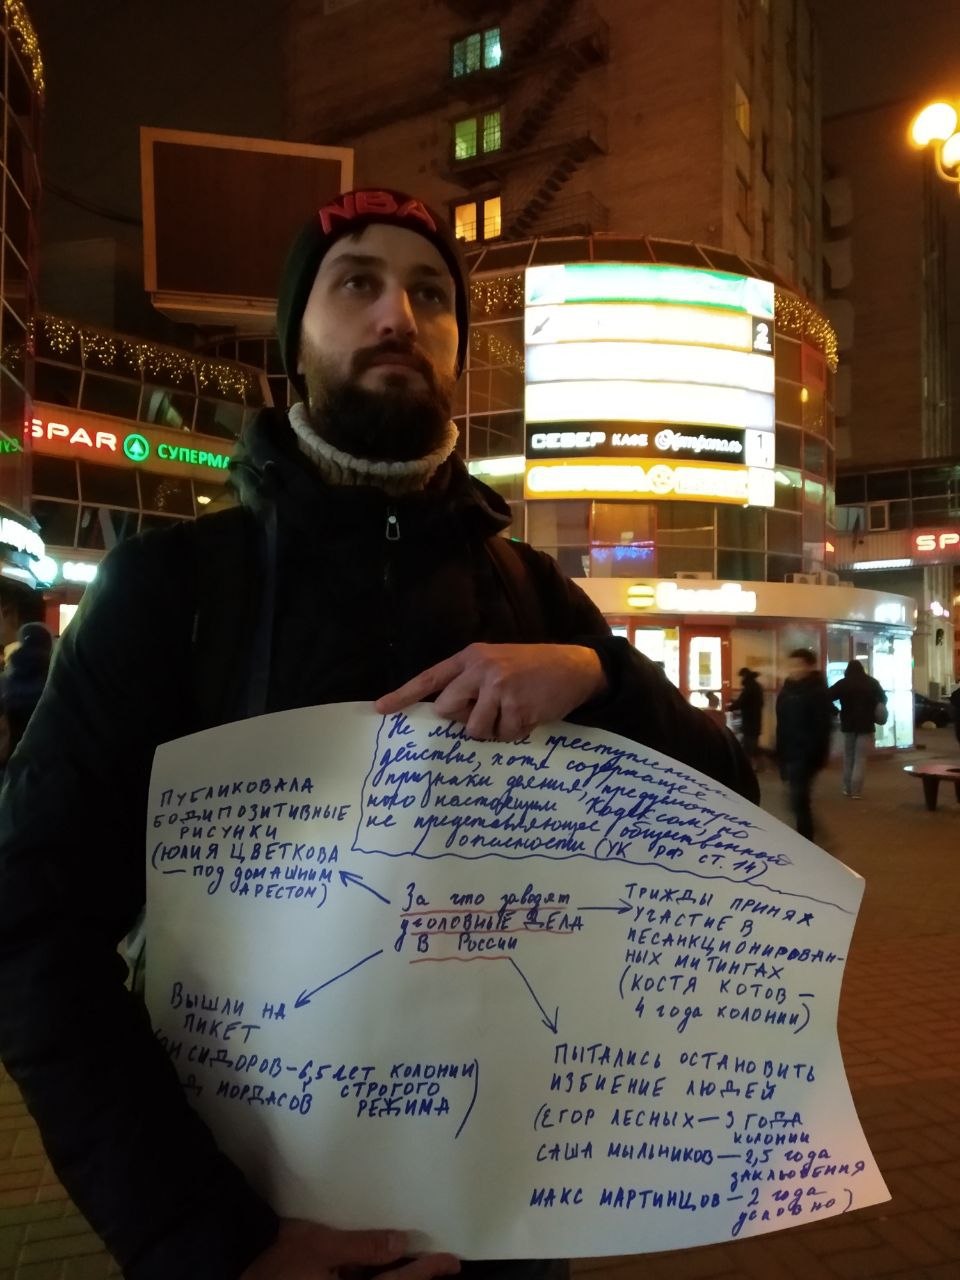 NBA
SPAR
СУПЕРМА
2
СЕВЕР КАФЕ Метрополь
1
SP
Не является преступлением
действие, хотя содержащее
признаки деяния, предусмотрен
ного настоящим Кодексом, но
не представляющее общественной
опасности (УК РФ ст. 14)
ПУБЛИКОВАЛА
БОДИПОЗИТИВНЫЕ
РИСУНКИ
(ЮЛИЯ ЦВЕТКОВА
— ПОД ДОМАШНИМ
АРЕСТОМ)
За что заводят
УГОЛОВНЫЕ ДЕЛА
В России
ТРИЖДЫ ПРИНЯХ
УЧАСТИЕ В
НЕСАНКЦИОНИРОВАН-
НЫХ МИТИНГАХ
(КОСТЯ КОТОВ —
4 года колонии)
ВЫШЛИ НА
ПИКЕТ
СИДОРОВ - 6,5 ЛЕТ КОЛОНИИ
МОРДАСОВ СТРОГОГО
РЕЖИМА)
ПЫТАЛИСЬ ОСТАНОВИТЬ
ИЗБИЕНИЕ ЛЮДЕЙ
(ЕГОР ЛЕСНЫХ — 3 ГОДА
КОЛОНИИ
САША МЫЛЬНИКОВ — 2,5 года
заключения
МАКС МАРТИНЦОВ — 2 года
условно)